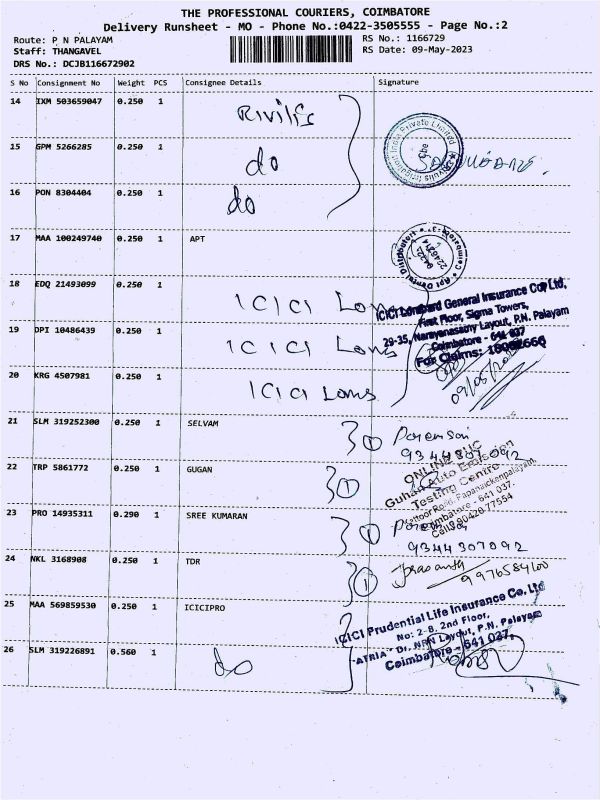 THE PROFESSIONAL COURIERS, COIMBATORE
Delivery Runsheet - MO - Phone No.:0422-3505555 - Page No.:2
Route: P N PALAYAM
RS No.: 1166729
Staff: THANGAVEL
RS Date: 09-May-2023
DRS No.: DCJB116672902
S No Consignment No Weight PCS Consignee Details Signature
14 IXM 503659047 0.250 1
15 GPM 5266285 0.250 1 do
16 PON 8304404 0.250 1 do
17 MAA 100249740 0.250 1 APT
18 EDQ 21493099 0.250 1 ICICI Lom
ICICI Lombard General Insurance Co. Ltd,
First Floor, Sigma Towers,
29-35, Narayanasamy Layout, P.N. Palayam
Coimbatore - 641 037
19 DPI 10486439 0.250 1 ICICI Lom
For Claims: 18002666
20 KRG 4507981 0.250 1 ICICI Lom
21 SLM 319252300 0.250 1 SELVAM 1
9344307092
22 TRP 5861772 0.250 1 GUGAN 1
ONLINE PUC
Guhan Auto Emission
Testing Centre
Coimbatore - 641 037.
23 PRO 14935311 0.290 1 SREE KUMARAN 1
9344307092
24 NKL 3168908 0.250 1 TDR 1
Prasanth
9976584100
25 MAA 569859530 0.250 1 ICICIPRO
ICICI Prudential Life Insurance Co. Ltd
No: 2-8, 2nd Floor,
"ATRIA" Dr. NRN Layout, P.N. Palayam
Coimbatore - 641 037.
26 SLM 319226891 0.560 1 do